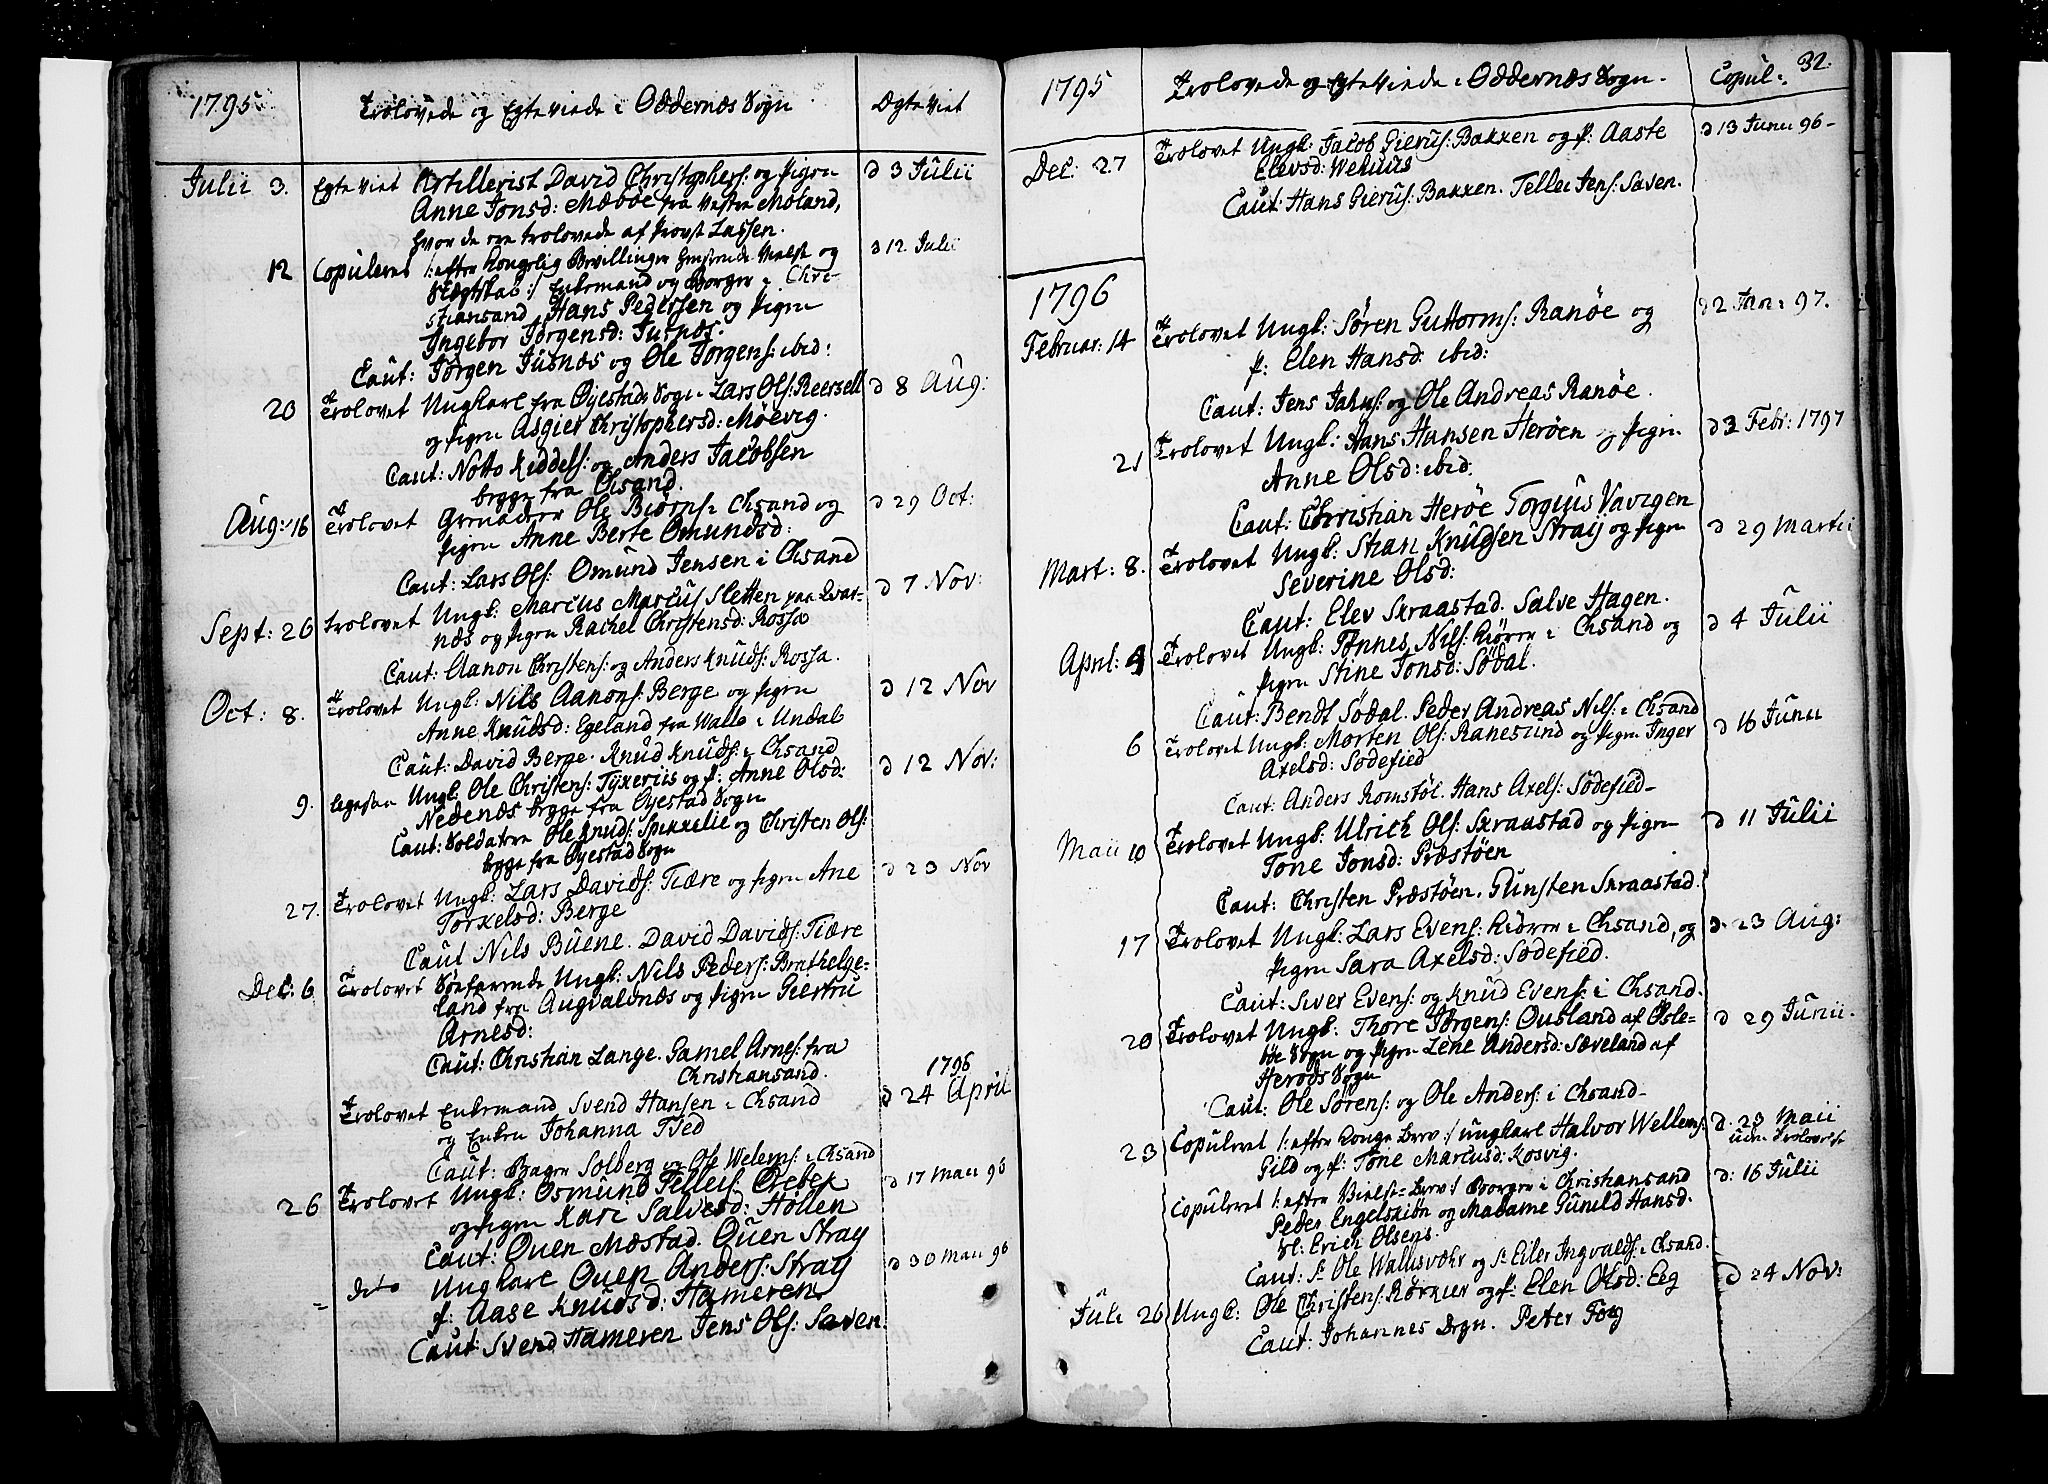 1795
Trolovede og Egteviede i Oddernæs Sogn
Ægteviet
Julii 3. Egteviet Artillerist David Christophers: og Pigen d 3 Julii
Anne Jonsd: Mæbøe fra Vestre Moland,
hvor de ere trolovede af Provst Lassen.
12 Copuleret /: efter Kongelig Bevillinger og d 12 Julii
Enkemand og Borger i Chri-
stiansand Hans Pedersen og Pigen
Ingebor Jørgensd: Jusnæs.
Caut: Jørgen Jusnæs og Ole Jørgens: ibid:
20 Trolovet Ungkarl fra Øyestads Sogn Lars Ols: Reersell d 8 Aug:
og Pigen Asgier Christophersd: Møevig.
Caut: Notto Keddels: og Anders Jacobsen
begge fra Chsand.
Aug: 16 Trolovet Grenadeer Ole Biørns: i Chsand og d 29 Oct:
Pigen Anne Berte Omundsd:
Caut: Lars Ols: Omund Jensen i Chsand
Sept: 26 trolovet Ungk: Marcus Marcus Sletten paa Qvar- d 7 Nov:
næs og Pigen Rachel Christensd: Rossa
Caut: Aanon Christens: og Anders Knuds: Rossa.
Oct: 8. Trolovet Ungk: Nils Aanons: Berge og Pigen d 12 Nov
Anne Knudsd: Egeland fra Walle i Undal
Caut: David Berge. Knud Knuds: i Chsand
9. ligesaa Ungk: Ole Christens: Tyxeriis og P: Anne Olsd: d 12 Nov:
Nedenæs begge fra Øyestad Sogn
Caut: Soldaterne Ole Knuds: Spikkelie og Christen Ols:
begge fra Øyestad Sogn
27. Trolovet Ungk: Lars Davids: Tiære og Pigen Ane d 23 Nov
Torkelsd: Berge
Caut Nils Buene. David Davids: Tiære
Dec: 6 Trolovet Søefarende Ungk: Nils Peders: Brathelge-
land fra Augvaldnæs og Pigen Giertru
Arnesd:
Caut: Christian Lange. Gamel Arnes: fra
Christiansand.
1796
Trolovet Enkemand Svend Hansen i Chsand d 24 April
og Enken Johanna Tved
Caut: Bager Solberg og Ole Welems: i Chsand
26 Trolovet Ungk: Osmund Telleis: Orebek d 17 Maii 96
og Pigen Kari Salvesd: Høllen
Caut: Ouen Mæstad. Ouen Stray
= dito Ungkarl Ouen Anders: Stray d 30 Maii 96
P: Aase Knudsd: Hameren
Caut: Svend Hameren Jens Ols: Saven.
32.
1795
Trolovede og Egteviede i Oddernæs Sogn.
Copul:
Dec: 27 Trolovet Ungk: Jacob Gierus: Bakken og P: Aaste d 13 Junii 96-
Elevsd: Wehuus
Caut: Hans Gierus: Bakken. Tellei Jens: Saven.
1796
Februar: 14 Trolovet Ungk: Søren Guttorms: Ranøe og d 2 Jan: 97.
P: Elen Hansd: ibid:
Caut: Jens Jahns: og Ole Andreas Ranøe.
21 Trolovet Ungk: Hans Hansen Herøen og Pigen d 2 Febr: 1797
Anne Olsd: ibid.
Caut: Christian Herøe Torgius Vavigen
Mart: 8. Trolovet Ungk: Stian Knudsen Stray og Pigen d 29 Martii
Severine Olsd:
Caut: Elev Skraastad. Salve Hagen.
April: 4 Trolovet Ungk: Tønnes Nils: Kiørre i Chsand og d 4 Julii
Pigen Stine Jonsd: Sødal.
Caut: Bendt Sødal. Peder Andreas Nils: i Chsand
6 Trolovet Ungk: Morten Ols: Ranesund og Pigen Inger d 16 Junii
Axelsd: Sødefied
Caut: Anders Romstøl. Hans Axels: Sødefied-
Maii 10 Trolovet Ungk: Ulrich Ols: Skraastad og Pigen d 11 Julii
Tone Jonsd: Præstøen
Caut: Christen Præstøen. Gunsten Skraastad.
17 Trolovet Ungk: Lars Evens: Kiørre i Chsand, og d. 23 Aug:
Pigen Sara Axelsd: Sødefied.
Caut: Siver Evens: og Knud Evens: i Chsand.
20 Trolovet Ungk: Thore Jørgens: Ousland af Øsle- d 29 Junii.
bøe Sogn og Pigen Lene Andersd: Sæveland af
Herøds Sogn
Caut: Ole Sørens: og Ole Anders: i Chsand-
23 Copuleret /: efter Konge Brev :/ ungkarl Halvor Wellems: d. 23 Maii
Gild og P: Tone Marcusd: Kosvig. uden Trolovelse
Copuleret /: efter Vielse-Brev :/ Borger i Christiansand d: 16 Julii
Peder Engelskiøn og Madame Gunild Hansd.
Sl: Erich Olsens.
Caut: Sr Ole Wallisvohr og Sr Eiler Ingvalds: i Chsand.
Juli 26 Ungk: Ole Christens: Kørrier og P: Elen Olsd: Eeg d 24 Nov:
Caut: Johannes Degn. Peter Foeg